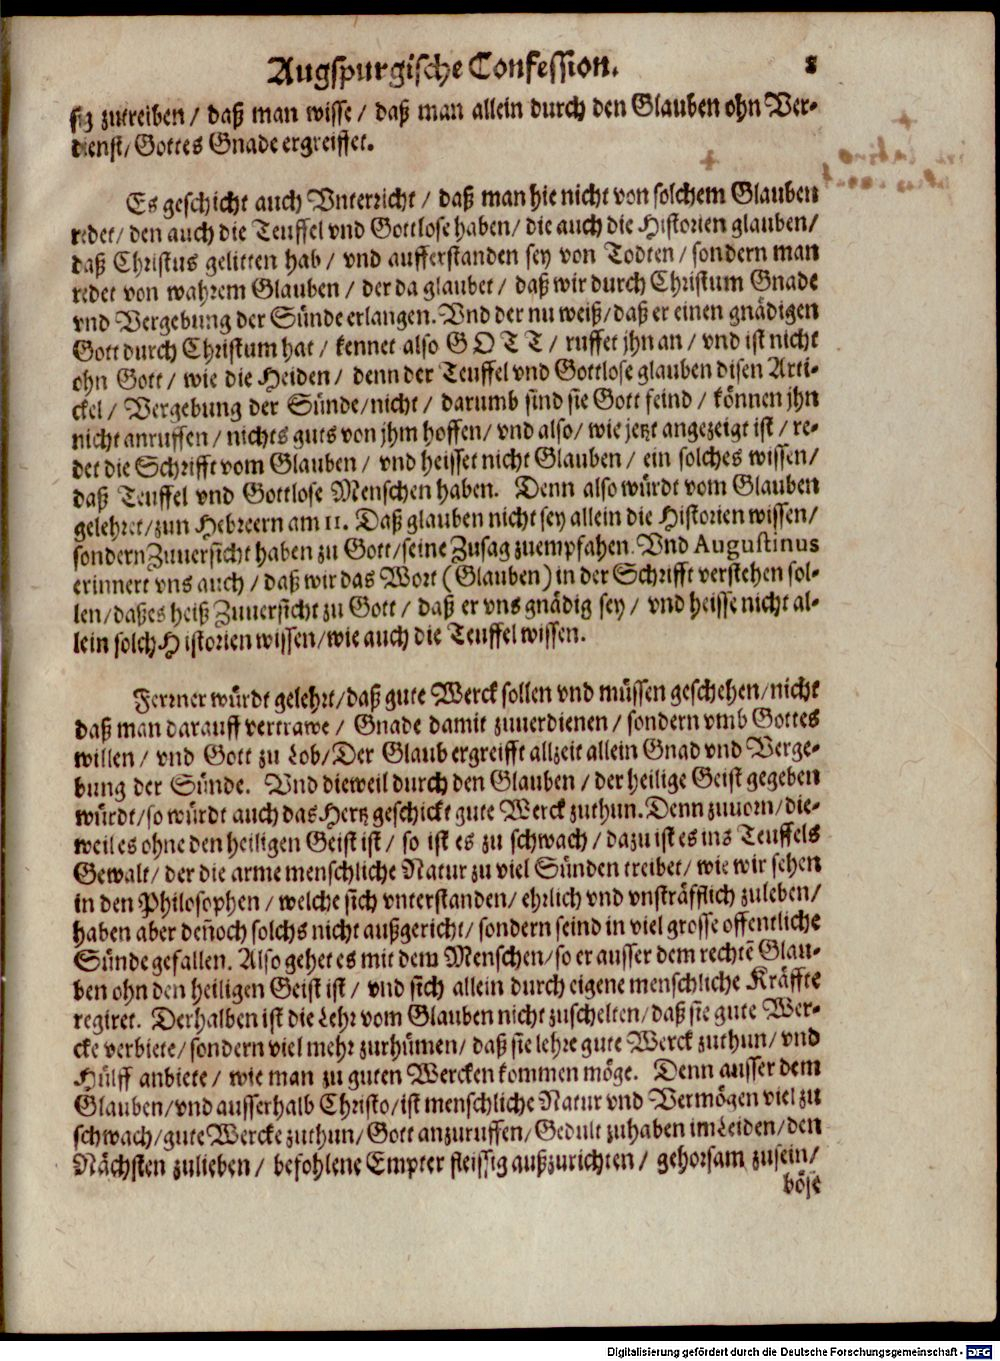 Augspurgische Confession. 8
sig zutreiben / daß man wisse / daß man allein durch den Glauben ohn Ver-
dienst / Gottes Gnade ergreiffet.
Es geschicht auch Vnterricht / daß man hie nicht von solchem Glauben
redet / den auch die Teuffel vnd Gottlose haben / die auch die Historien glauben /
daß Christus gelitten hab / vnd aufferstanden sey von Todten / sondern man
redet von wahrem Glauben / der da glaubet / daß wir durch Christum Gnade
vnd Vergebung der Sünde erlangen. Vnd der nu weiß / daß er einen gnädigen
Gott durch Christum hat / kennet also GOTT / ruffet jhn an / vnd ist nicht
ohn Gott / wie die Heiden / denn der Teuffel vnd Gottlose glauben disen Arti-
ckel / Vergebung der Sünde / nicht / darumb sind sie Gott feind / können jhn
nicht anruffen / nichts guts von jhm hoffen / vnd also / wie jetzt angezeigt ist / re-
det die Schrifft vom Glauben / vnd heisset nicht Glauben / ein solches wissen /
daß Teuffel vnd Gottlose Menschen haben. Denn also würdt vom Glauben
gelehret / zun Hebreern am 11. Daß glauben nicht sey allein die Historien wissen /
sondern Zuuersicht haben zu Gott / seine Zusag zuempfahen. Vnd Augustinus
erinnert vns auch / daß wir das Wort (Glauben) in der Schrifft verstehen sol-
len / daß es heiß Zuuersicht zu Gott / daß er vns gnädig sey / vnd heisse nicht al-
lein solch Historien wissen / wie auch die Teuffel wissen.
Ferrner würdt gelehrt / daß gute Werck sollen vnd müssen geschehen / nicht
daß man darauff vertrawe / Gnade damit zuuerdienen / sondern vmb Gottes
willen / vnd Gott zu Lob / Der Glaub ergreifft allzeit allein Gnad vnd Verge-
bung der Sünde. Vnd dieweil durch den Glauben / der heilige Geist gegeben
würdt / so würdt auch das Hertz geschickt gute Werck zuthun. Denn zuuorn / die-
weil es ohne den heiligen Geist ist / so ist es zu schwach / dazu ist es ins Teuffels
Gewalt / der die arme menschliche Natur zu viel Sünden treibet / wie wir sehen
in den Philosophen / welche sich vnterstanden / ehrlich vnd vnsträfflich zuleben /
haben aber deñoch solchs nicht außgericht / sondern seind in viel grosse offentliche
Sünde gefallen. Also gehet es mit dem Menschen / so er ausser dem rechtẽ Glau-
ben ohn den heiligen Geist ist / vnd sich allein durch eigene menschliche Kräffte
regiret. Derhalben ist die Lehr vom Glauben nicht zuschelten / daß sie gute Wer-
cke verbiete / sondern viel mehr zurhümen / daß sie lehre gute Werck zuthun / vnd
Hülff anbiete / wie man zu guten Wercken kommen möge. Denn ausser dem
Glauben / vnd ausserhalb Christo / ist menschliche Natur vnd Vermögen viel zu
schwach / gute Wercke zuthun / Gott anzuruffen / Gedult zuhaben im Leiden / den
Nächsten zulieben / befohlene Empter fleissig außzurichten / gehorsam zusein /
böse
Digitalisierung gefördert durch die Deutsche Forschungsgemeinschaft - DFG